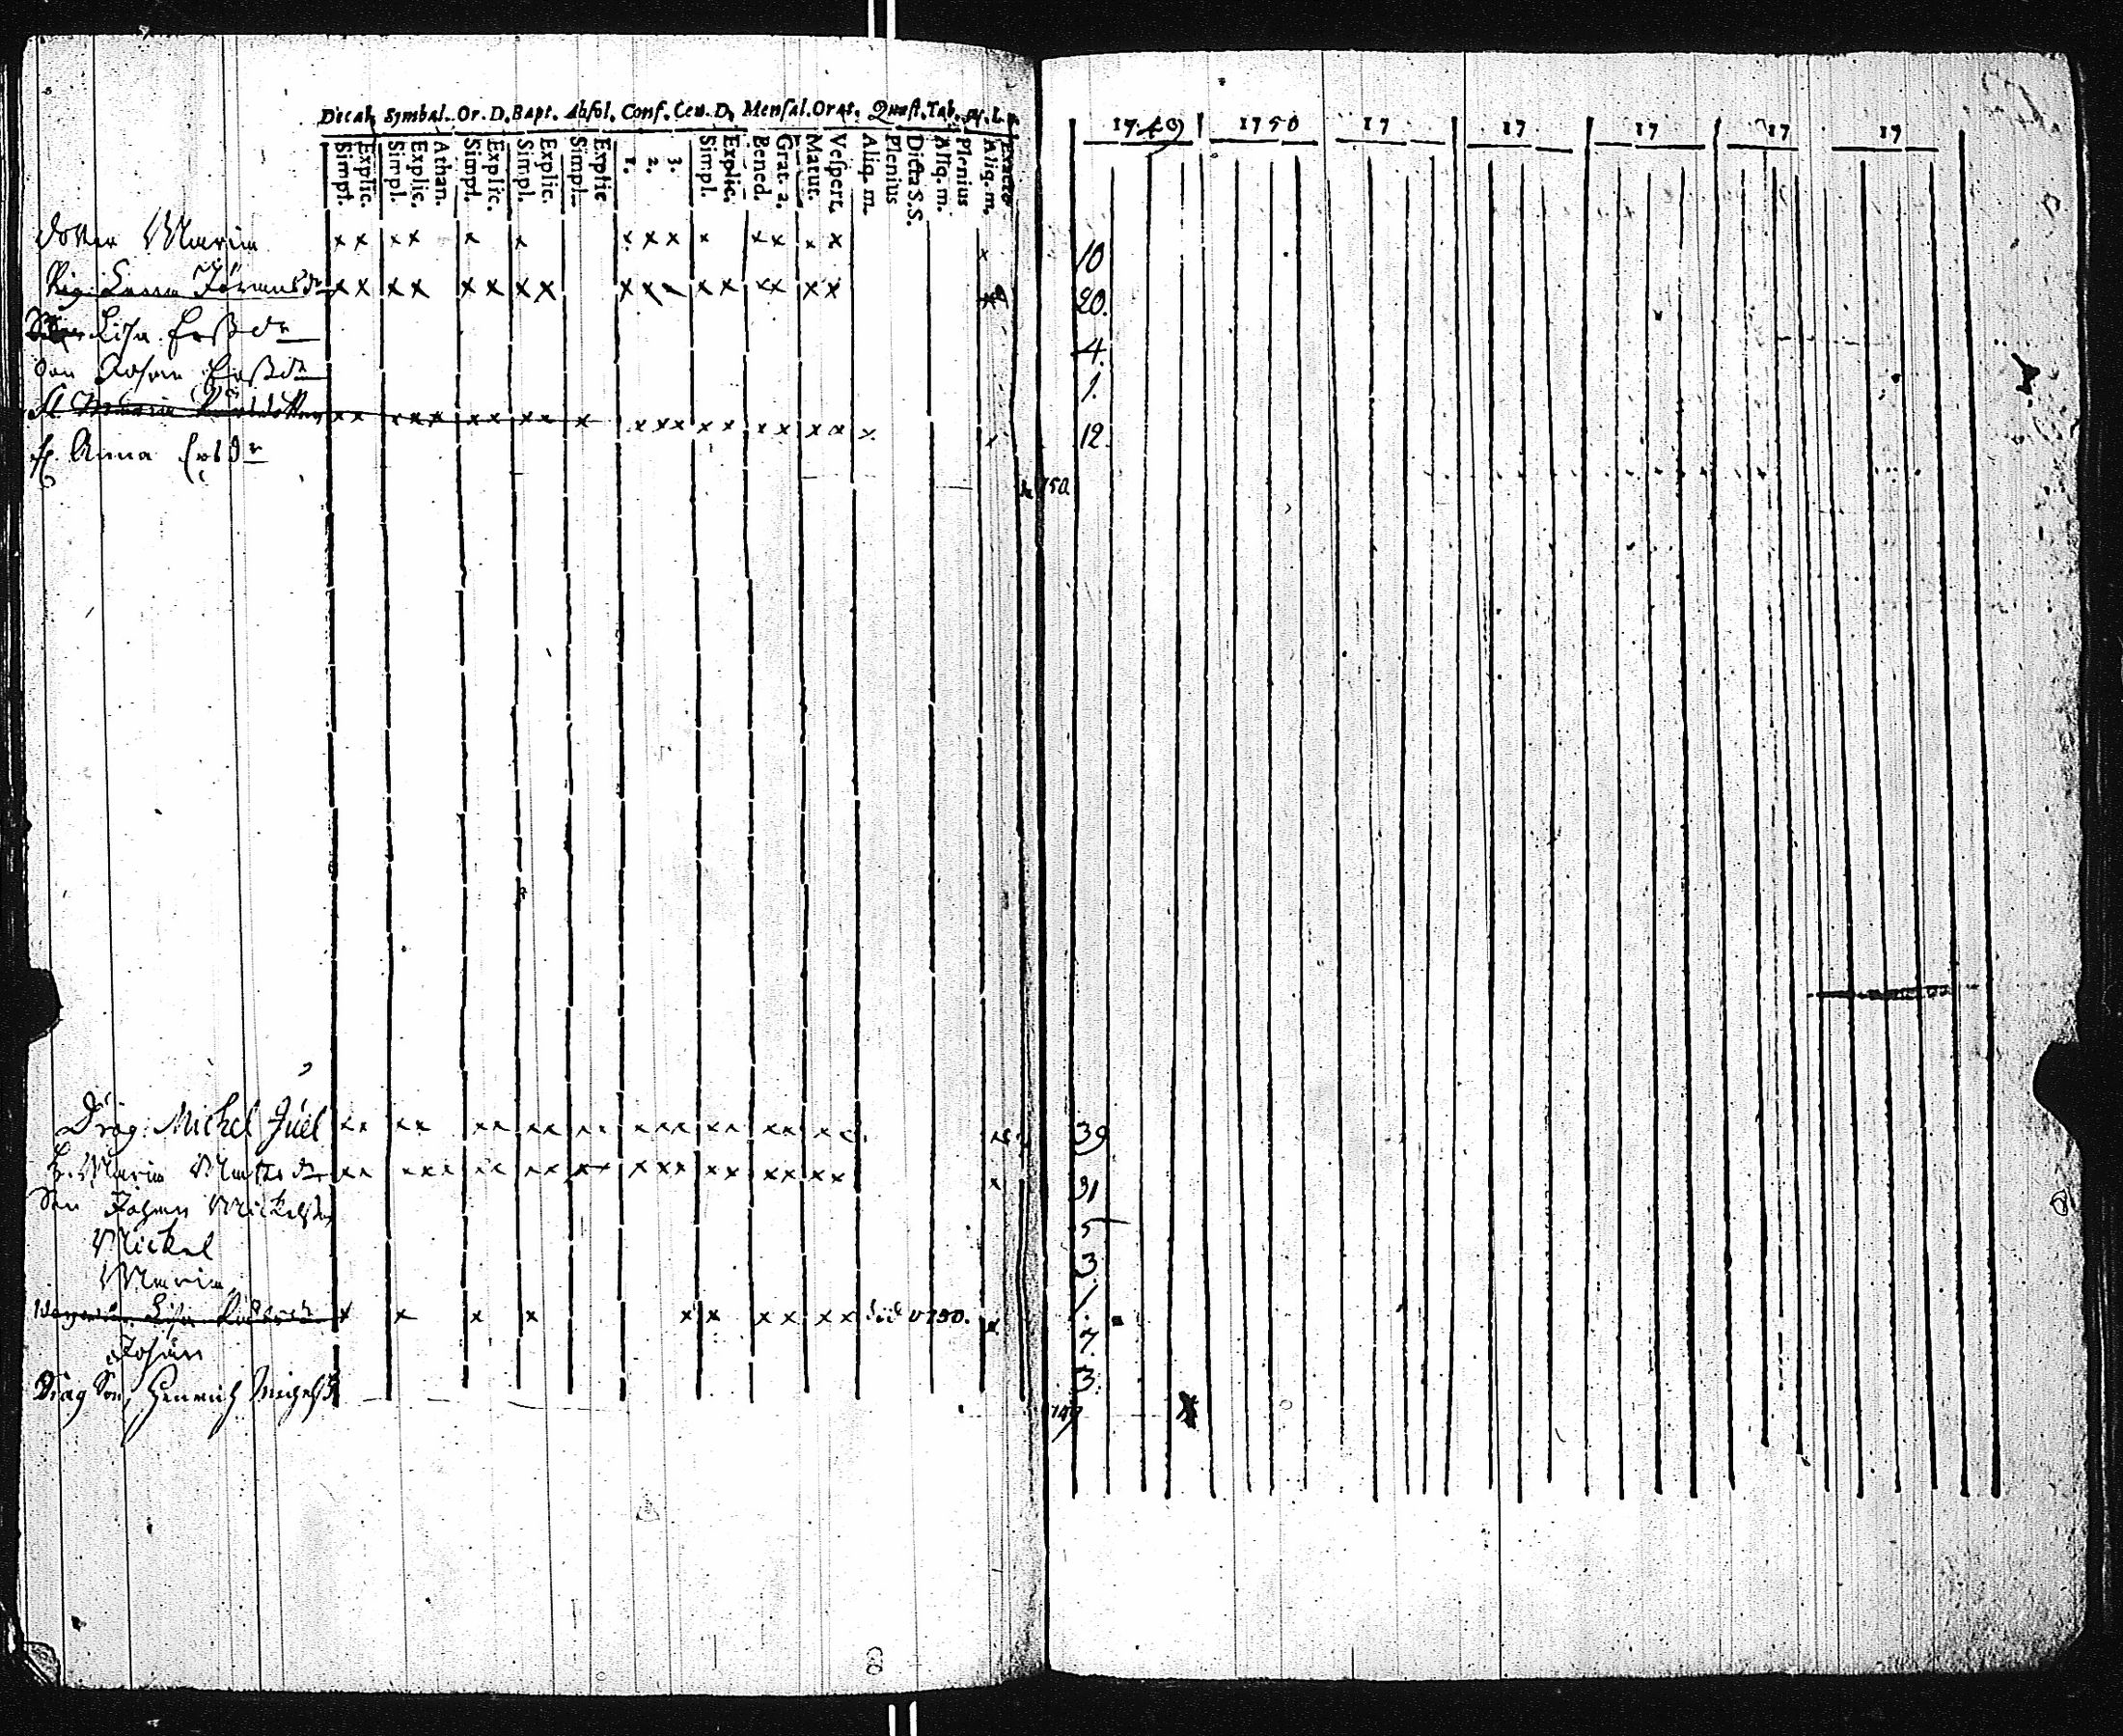 Decal. Symbal. Or. D. Bapt. Absol. Conf. Cœn. D. Mensal. Orat. Quæst. Tab.
Simpl. Explic. Simpl. Explic. Athan. Simpl. Explic. Simpl. Explic. Simpl. Explic 1. 2. 3. Simpl. Explic. Bened. Grat. a. Matut. Vespert. Aliq. m. Plenius Dicta S.S. Aliq. m. Plenius Aliq. m. Exacte
1749 1750 17 17 17 17 17
dotter Maria x x x x x x x x x x x x x x x 10
Pig. Lena Jöransdr x x x x x x x x x x x x x x x x x 20.
Lisa Ersdr 4.
1.
Maria x x x x x x x x x x x x x x x x x x x x 12
H. Anna Ersdr 1750
Drag: Michel Juel x x x x x x x x x x x x x x x x x x x 39
H. Maria Mattsdr x x x x x x x x x x x x x x x x x x x x 31
Son Johan Mickelson 5
Mickel 3
Maria 1.
Lisa x x x x x x x x x x död 1750. x 7.
Johan 3.
Drag Son, Henrich Michels 1749